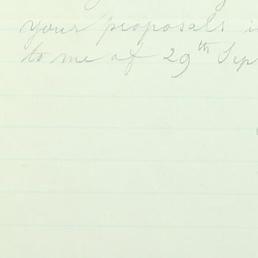 your proposals i
to me of 29th Sep